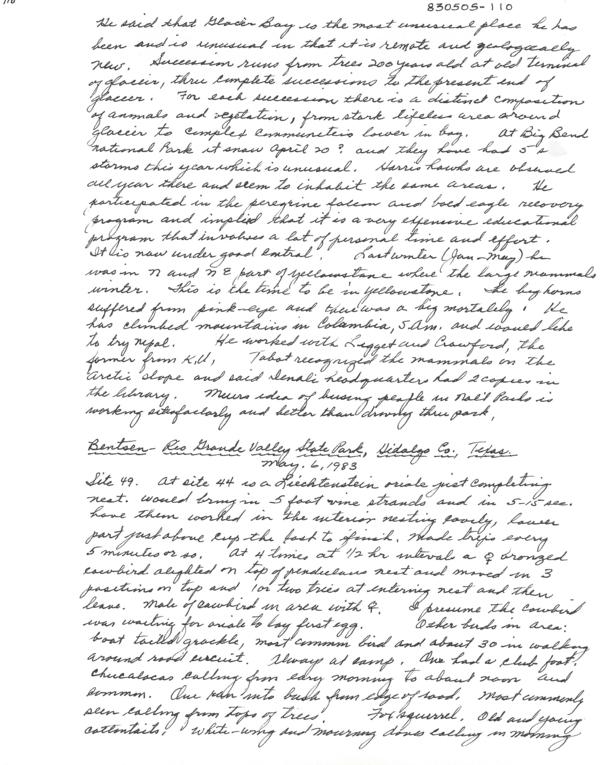 830505-110
He said that Glacier Bay is the most unusual place he has
been and is unusual in that it is remote and geologically
new. Succession runs from trees 200 years old at old terminal
of glacier, three complete successions to the present end of
glacier. For each succession there is a distinct composition
of animals and vegetation, from stark lifeless area around
glacier to complex communities lower in bay. At Big Bend
national Park it snow April 20? and they have had 5 s
storms this year which is unusual. Harris hawks are observed
all year there and seem to inhabit the same areas. He
participated in the peregrine falcon and bald eagle recovery
program and implied that it is a very expensive educational
program that involves a lot of personal time and effort.
It is now under good control. Last winter (Jan-May) he
was in N and NE part of yellowstone where the large mammals
winter. This is the time to be in yellowstone. The big horns
suffered from pink-eye and there was a big mortality. He
has climbed mountains in Columbia, S.Am. and would like
to try nepal. He worked with Legget and Crawford, the
former from K.U, Tabot recognized the mammals on the
arctic slope and said Denali headquarters had 2 copies in
the library. Muirs idea of busing people in Nat'l Parks is
working satisfactorly and better than driving thru park.
Bentsen - Rio Grande Valley State Park, Hidalgo Co., Texas.
May. 6, 1983
Site 49. At site 44 is a Liechtenstein oriole just completing
nest. would bring in 5 foot vine strands and in 5-15 sec.
have them worked in the interior nesting cavity, lower
part just above cup the last to finish. Made trips every
5 minutes or so. At 4 times at 1/2 hr interval a ♀ bronzed
cowbird alighted on top of pendulous nest and moved in 3
positions on top and 1 or two tries at entering nest and then
leave. Male of cowbird in area with ♀. I presume the cowbird
was waiting for oriole to lay first egg. Other birds in area:
boat tailed grackle, most common bird and about 30 in walking
around road circuit. Always at camp. One had a club foot.
Chucalacas calling from early morning to about noon and
common. One ran into bush from edge of road. Most commonly
seen calling from tops of trees. Fox squirrel. Old and young
cottontails. White-wing and mourning doves calling in morning